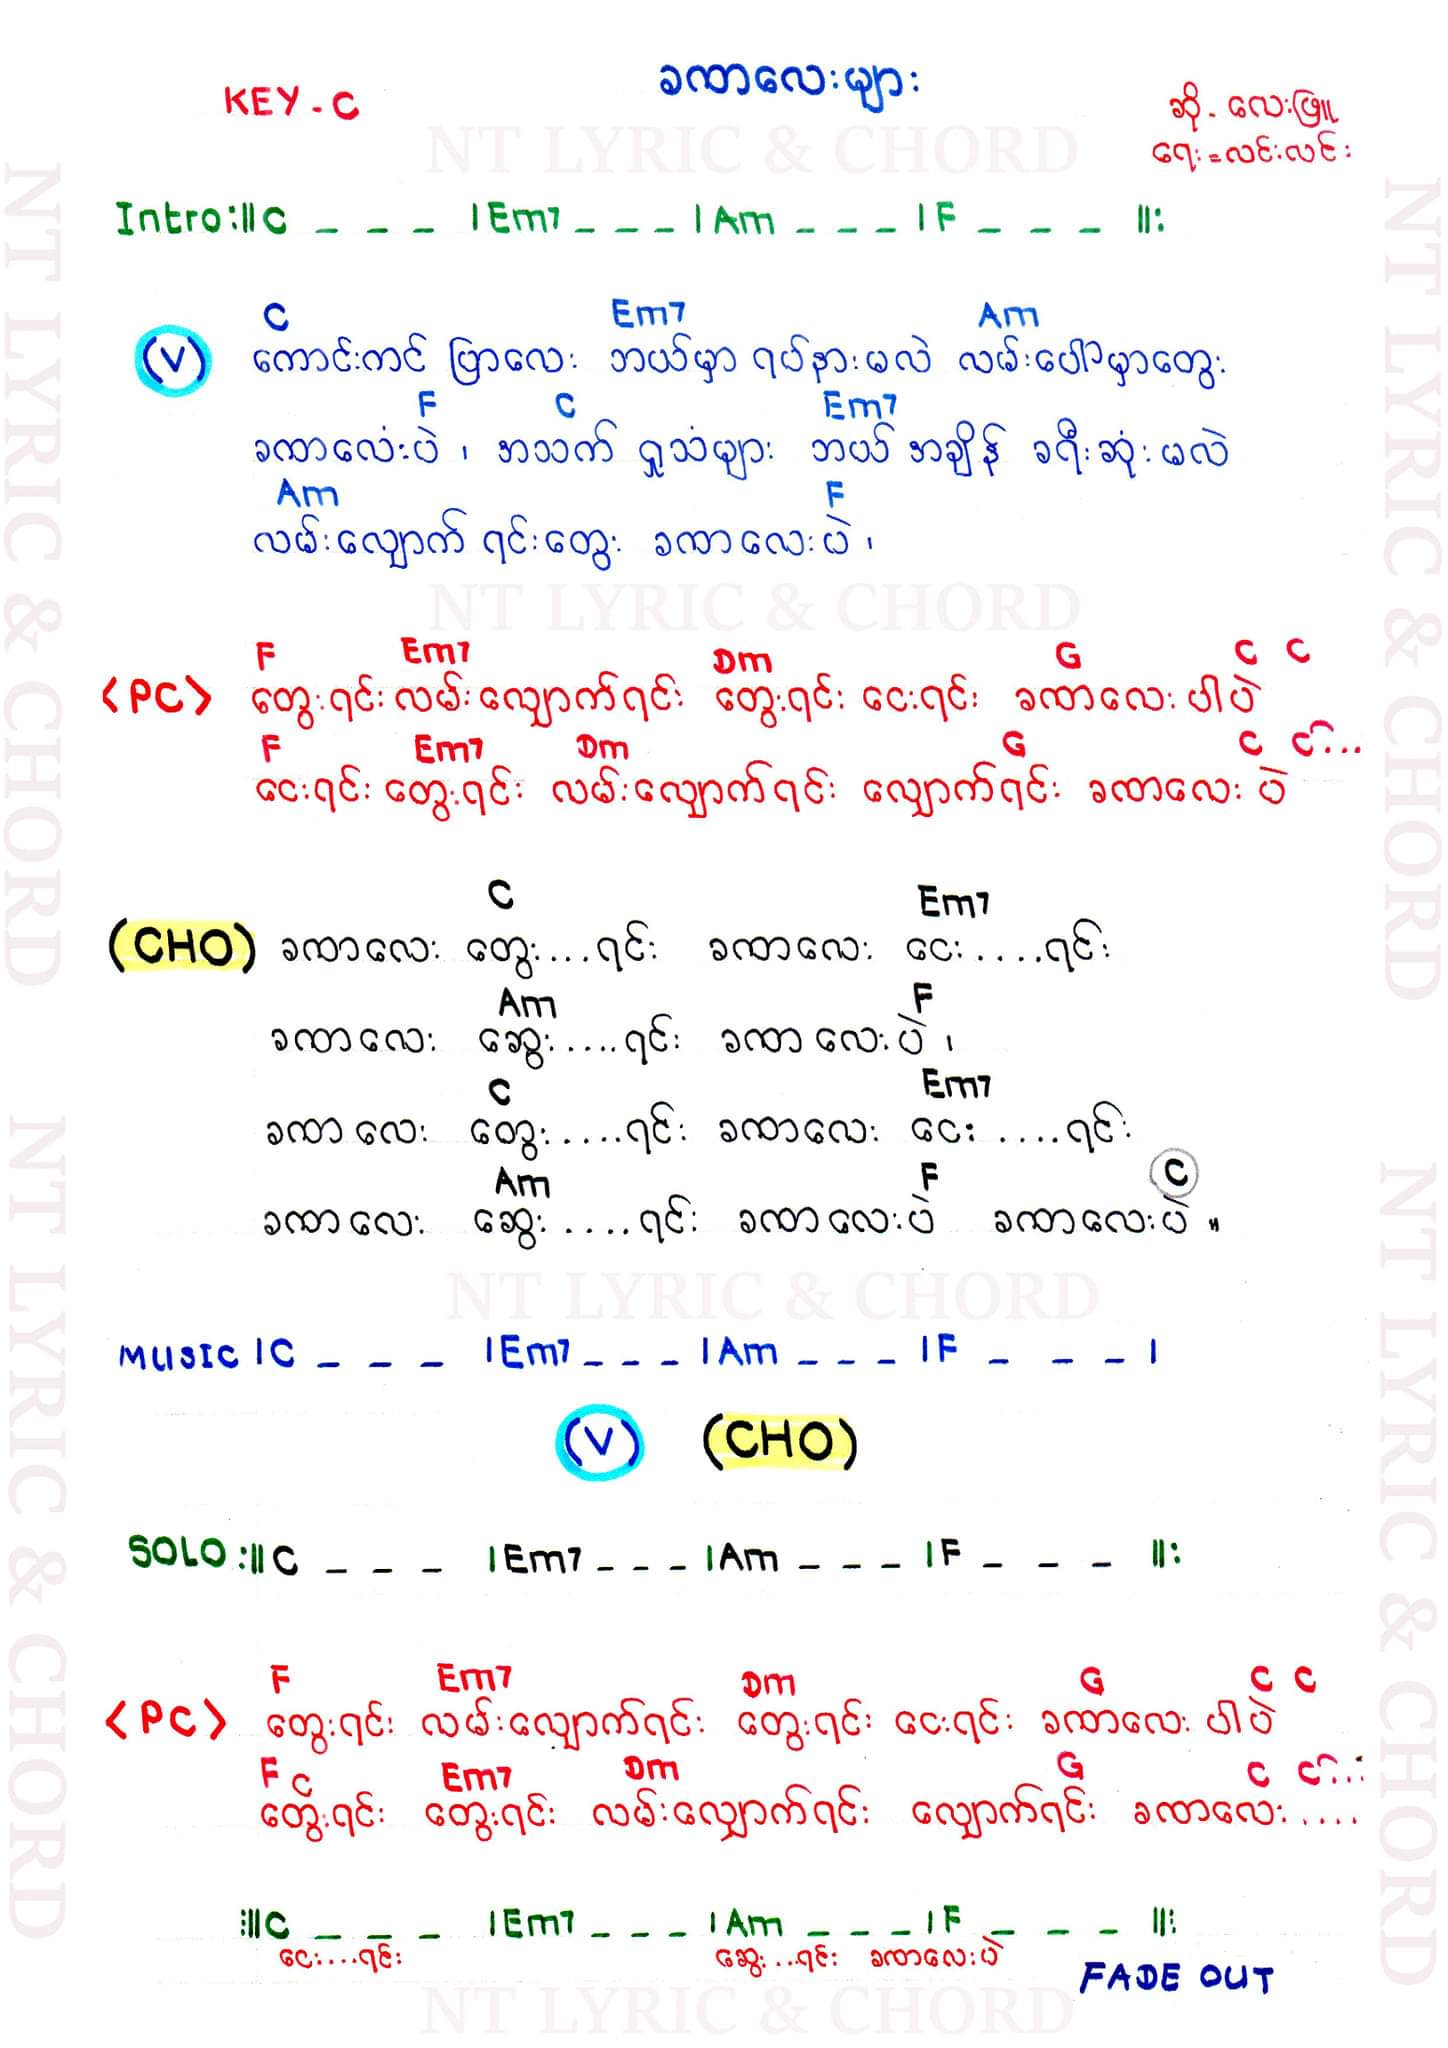 ခဏလေးများ
KEY - C
ဆို - လေးဖြူ
ရေး = လင်းလင်း
NT LYRIC & CHORD
Intro :|| C _ _ _ | Em7 _ _ _ | Am _ _ _ | F _ _ _ ||:
C Em7 Am
(V) ကောင်းကင် ပြာလေး ဘယ်မှာ ရပ်နားမလဲ လမ်းပေါ်မှာတွေး
F C Em7
ခဏလေးပဲ ၊ အသက် ရှုသံများ ဘယ် အချိန် ခရီးဆုံးမလဲ
Am F
လမ်းလျှောက် ရင်းတွေး ခဏလေးပဲ ၊
NT LYRIC & CHORD
F Em7 Dm G C C
<PC> တွေးရင်း လမ်းလျှောက်ရင်း တွေးရင်း ငေးရင်း ခဏလေး ပါပဲ
F Em7 Dm G C C...
ငေးရင်း တွေးရင်း လမ်းလျှောက်ရင်း လျှောက်ရင်း ခဏလေး ပဲ
C Em7
(CHO) ခဏလေး တွေး...ရင်း ခဏလေး ငေး....ရင်း
Am F
ခဏလေး ဆွေး....ရင်း ခဏလေးပဲ ၊
C Em7
ခဏလေး တွေး....ရင်း ခဏလေး ငေး....ရင်း
Am F C
ခဏလေး ဆွေး....ရင်း ခဏလေးပဲ ခဏလေးပဲ ။
NT LYRIC & CHORD
MUSIC | C _ _ _ | Em7 _ _ _ | Am _ _ _ | F _ _ _ |
(V) (CHO)
SOLO :|| C _ _ _ | Em7 _ _ _ | Am _ _ _ | F _ _ _ ||:
F Em7 Dm G C C
<PC> တွေးရင်း လမ်းလျှောက်ရင်း တွေးရင်း ငေးရင်း ခဏလေး ပါပဲ
F Em7 Dm G C C...
တွေးရင်း တွေးရင်း လမ်းလျှောက်ရင်း လျှောက်ရင်း ခဏလေး....
:||| C _ _ _ | Em7 _ _ _ | Am _ _ _ | F _ _ _ ||:
ငေး....ရင်း ဆွေး...ရင်း ခဏလေးပဲ
FADE OUT
NT LYRIC & CHORD
NT LYRIC & CHORD
NT LYRIC & CHORD
NT LYRIC & CHORD
NT LYRIC & CHORD